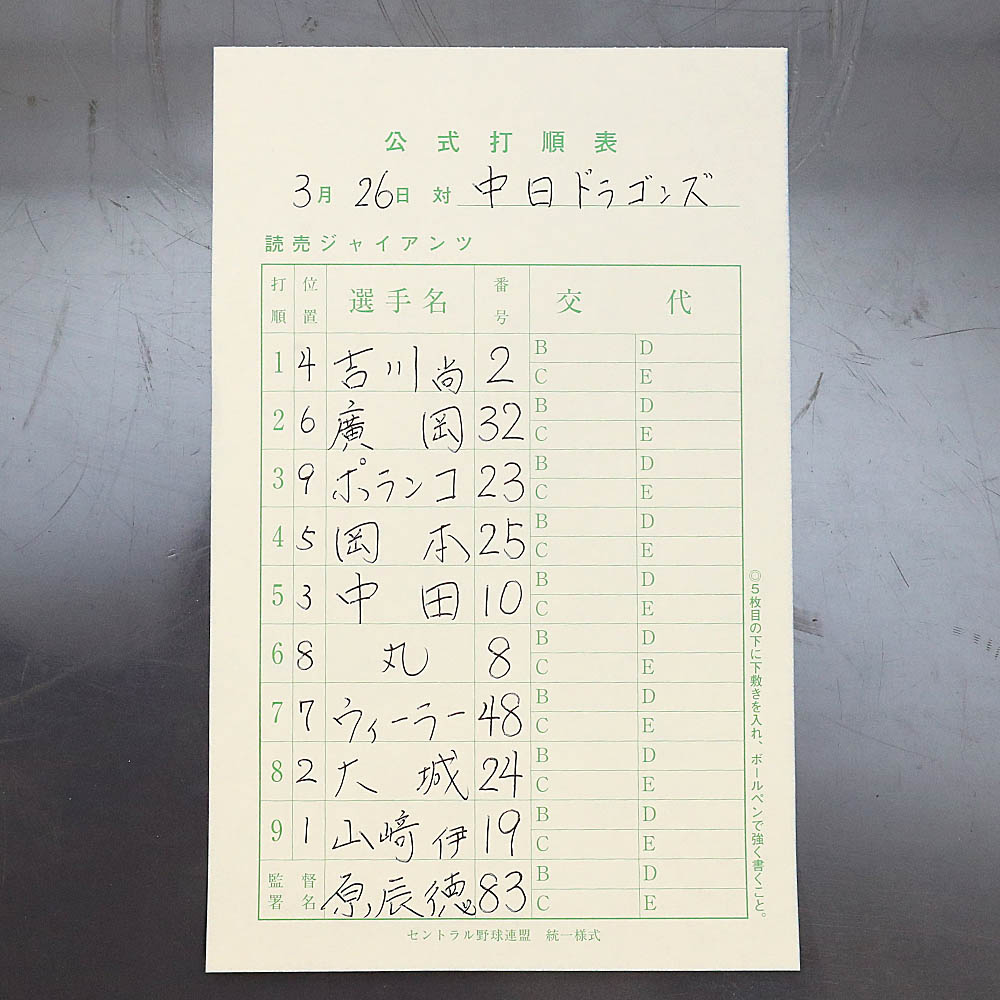 公式打順表
3月26日 対 中日ドラゴンズ
読売ジャイアンツ
打順 位置 選手名 番号 交代
1 4 吉川尚 2 B D
C E
2 6 廣岡 32 B D
C E
3 9 ポランコ 23 B D
C E
4 5 岡本 25 B D
C E
5 3 中田 10 B D
C E
6 8 丸 8 B D
C E
7 7 ウィーラー 48 B D
C E
8 2 大城 24 B D
C E
9 1 山﨑伊 19 B D
C E
監督署名 原辰徳 83 B D
C E
セントラル野球連盟 統一様式
◎5枚目の下に下敷きを入れ、ボールペンで強く書くこと。